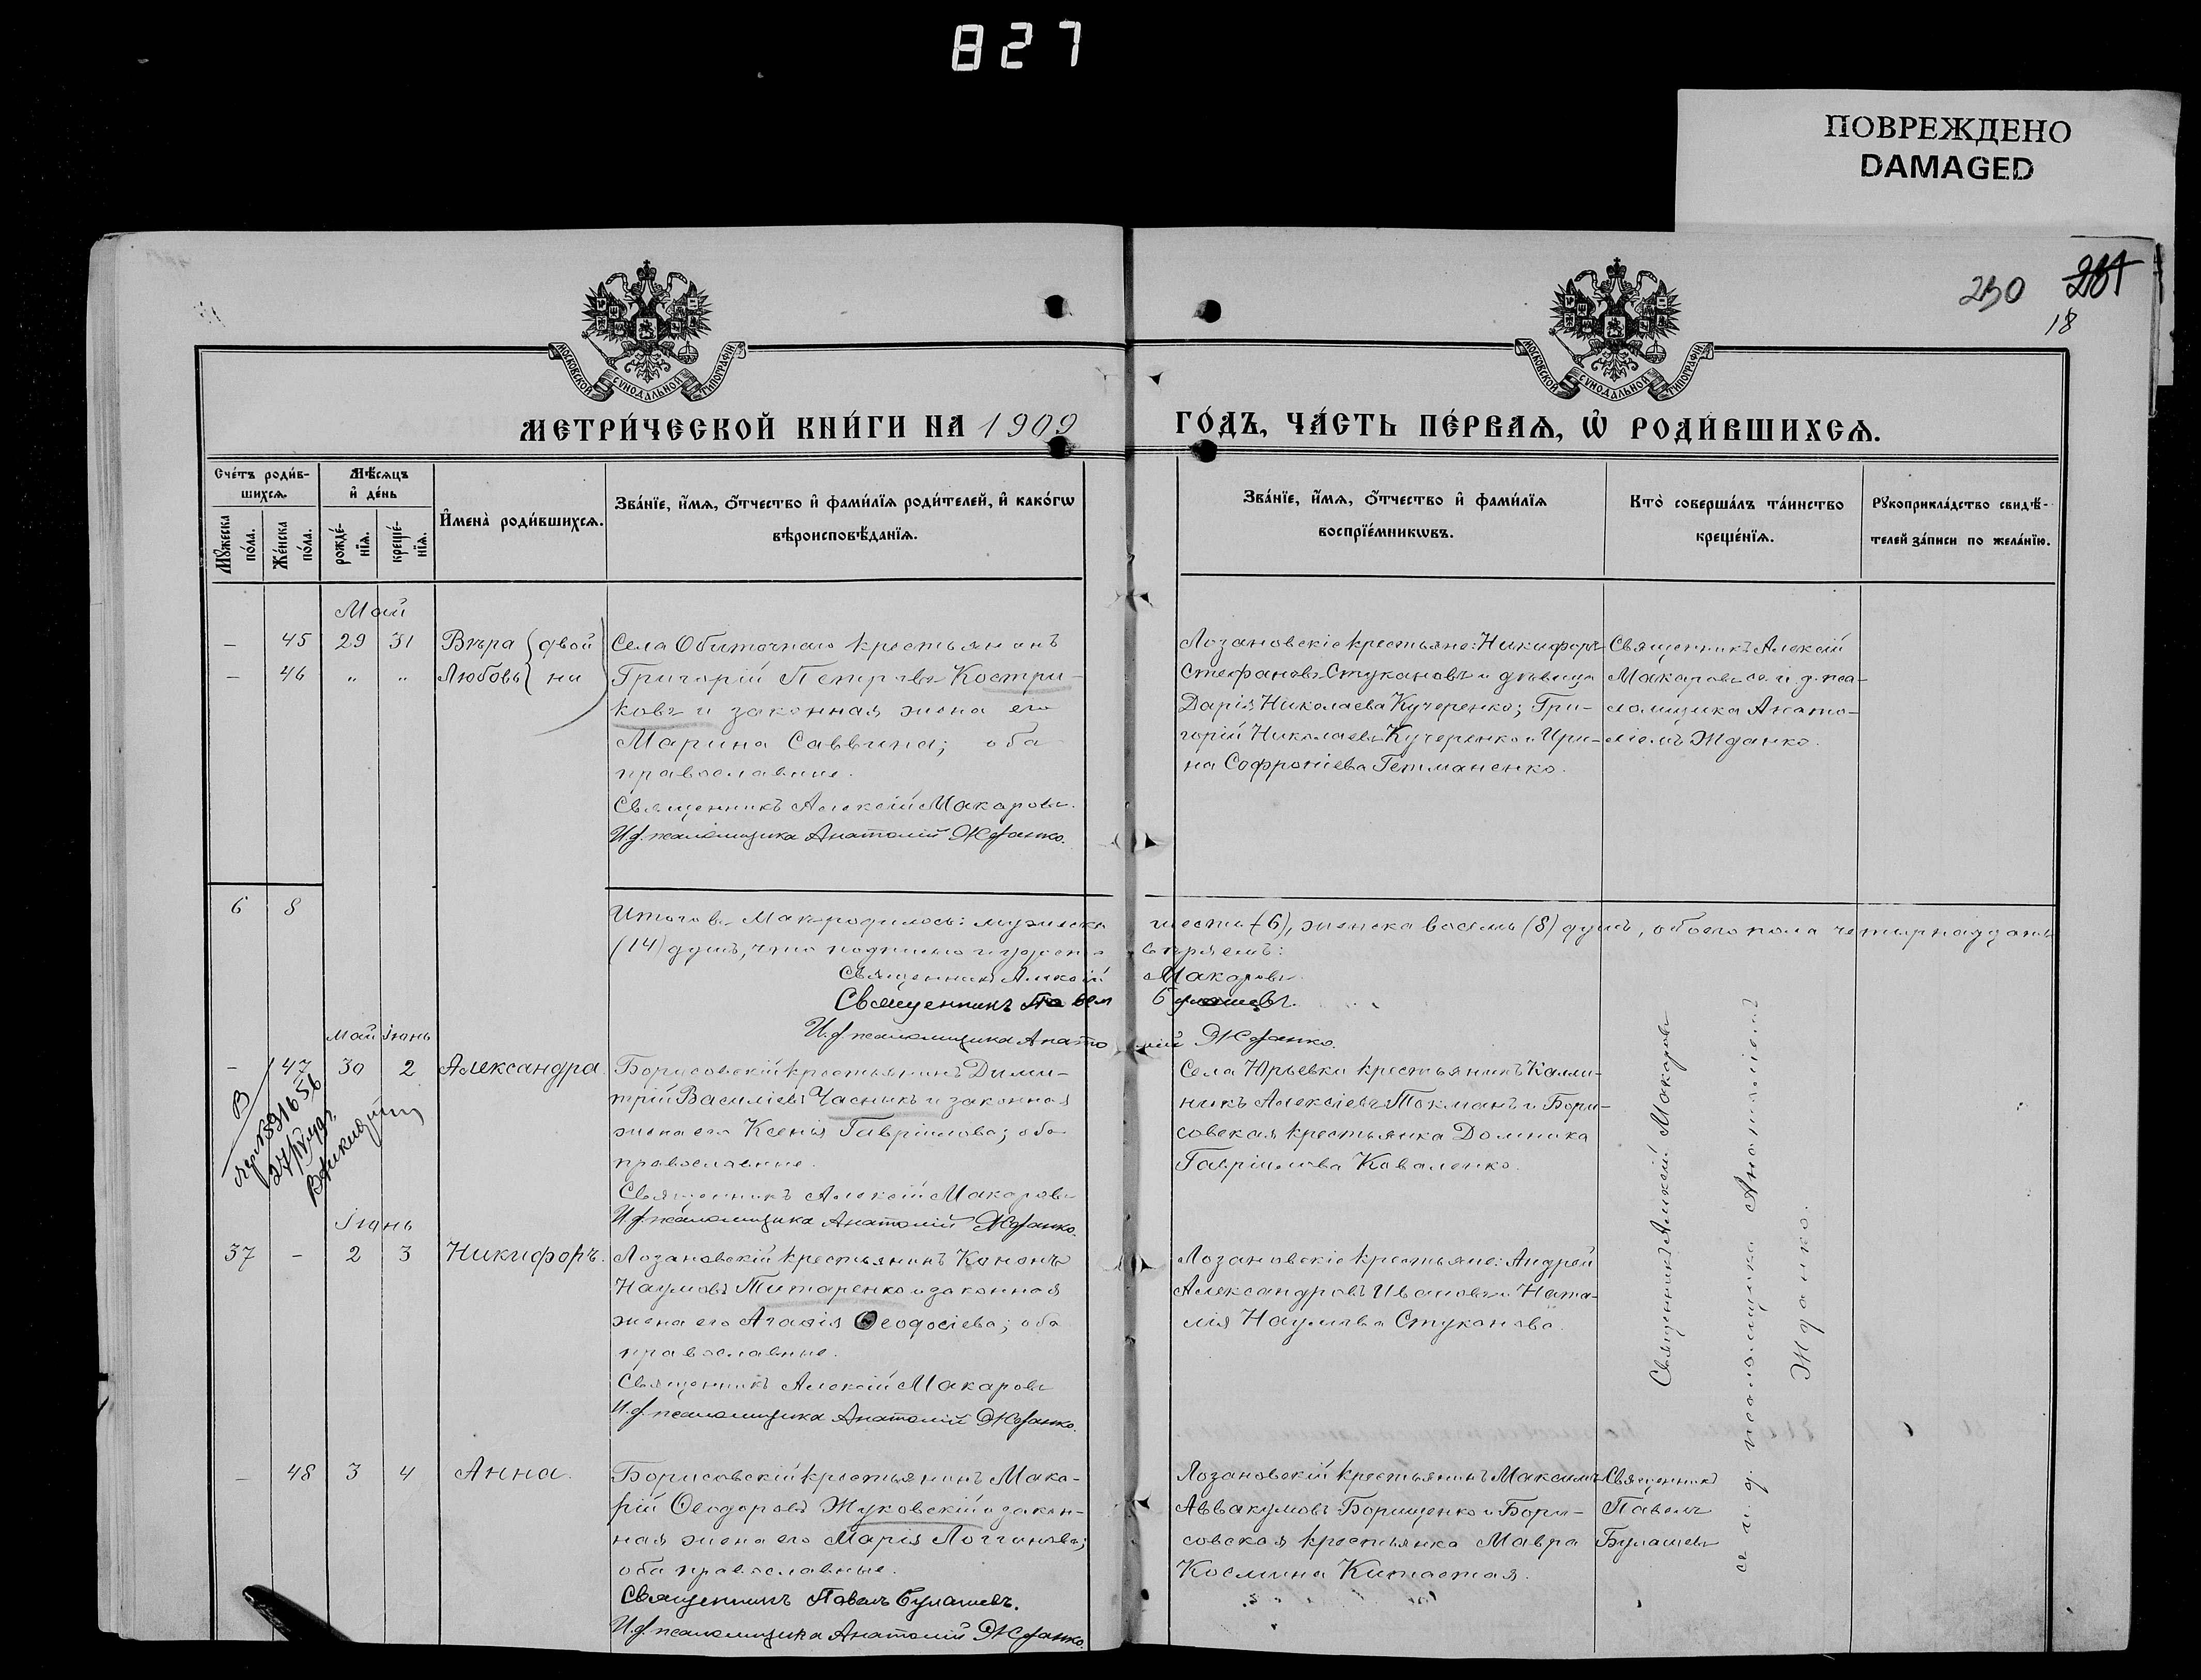 827
ПОВРЕЖДЕНО
DAMAGED
230 231
18
МОСКОВСКОЙ СѴНОДАЛЬНОЙ ТИПОГРАФІИ
МОСКОВСКОЙ СѴНОДАЛЬНОЙ ТИПОГРАФІИ
МЕТРИ́ЧЕСКОЙ КНИ́ГИ НА 1909
ГО́ДЪ, ЧА́СТЬ ПЕ́РВАѦ, Ѽ РОДИ́ВШИХСѦ.
Сче́тъ роди́в-
шихсѧ.
Мѣ́сѧцъ
и҆ де́нь
Мꙋ́жеска
по́ла.
Же́нска
по́ла.
рожде́-
нїѧ.
креще́-
нїѧ.
И҆мена̀ роди́вшихсѧ.
Зва́нїе, и҆́мѧ, ѻ҆́тчество и҆ фами́лїѧ роди́телей, и҆ како́гѡ
вѣроисповѣ́данїѧ.
Зва́нїе, и҆́мѧ, ѻ҆́тчество и҆ фами́лїѧ
воспрїе́мникѡвъ.
Кто̀ соверша́лъ та́инство
креще́нїѧ.
Рꙋкоприкла́дство свидѣ́-
телей за́писи по жела́нїю.
Май
– 45 29 31 Вѣра { двой
– 46 „ „ Любовь { ни
Села Обиточнаго крестьянинъ
Григорій Петровъ Костри-
ковъ и законная жена его
Марина Саввина; оба
православные.
Священникъ Алексій Макаровъ.
И.д. псаломщика Анатолій Жданко.
Лозановскіе крестьяне: Никифоръ
Стефановъ Стукановъ и дѣвица
Дарія Николаева Кучеренко; Гри-
горій Николаевъ Кучеренко и Ири-
на Софроніева Гетманенко.
Священникъ Алексій
Макаровъ съ и. д. пса-
ломщика Анато-
ліемъ Жданко.
6 8
Итого въ Маѣ родилось: мужеска шесть (6), женска восемь (8) душъ, обоего пола четырнадцать
(14) душъ, что подписью
Священникъ Алексій Макаровъ.
Священникъ Павелъ Булашевъ.
И.д. псаломщика Анатолій Жданко.
Май Іюнь
– 47 30 2 Александра
Борисовскій крестьянинъ Дими-
трій Василіевъ Часникъ и законная
жена его Ксенія Гавріилова; оба
православные.
Священникъ Алексій Макаровъ
И.д. псаломщика Анатолій Жданко.
Села Юрьевки крестьянинъ Калли-
никъ Алексіевъ Токманъ и Бори-
совская крестьянка Домника
Гавріилова Коваленко.
Священникъ Алексій Макаровъ
съ и. д. псаломщика Анатоліемъ
Жданко.
Іюнь
37 – 2 3 Никифоръ.
Лозановскій крестьянинъ Кононъ
Наумовъ Титаренко и законная
жена его Агафія Ѳеодосіева; оба
православные.
Священникъ Алексій Макаровъ
И.д. псаломщика Анатолій Жданко.
Лозановскіе крестьяне: Андрей
Александровъ Ивановъ и Ната-
лія Наумова Стуканова.
– 48 3 4 Анна.
Борисовскій крестьянинъ Мака-
рій Ѳеодоровъ Жуковскій и закон-
ная жена его Марія Логгинова;
оба православные.
Священникъ Павелъ Булашевъ.
И.д. псаломщика Анатолій Жданко.
Лозановскій крестьянинъ Максимъ
Аввакумовъ Борищенко и Бори-
совская крестьянка Мавра
Космина Китастая.
Священникъ
Павелъ
Булашевъ